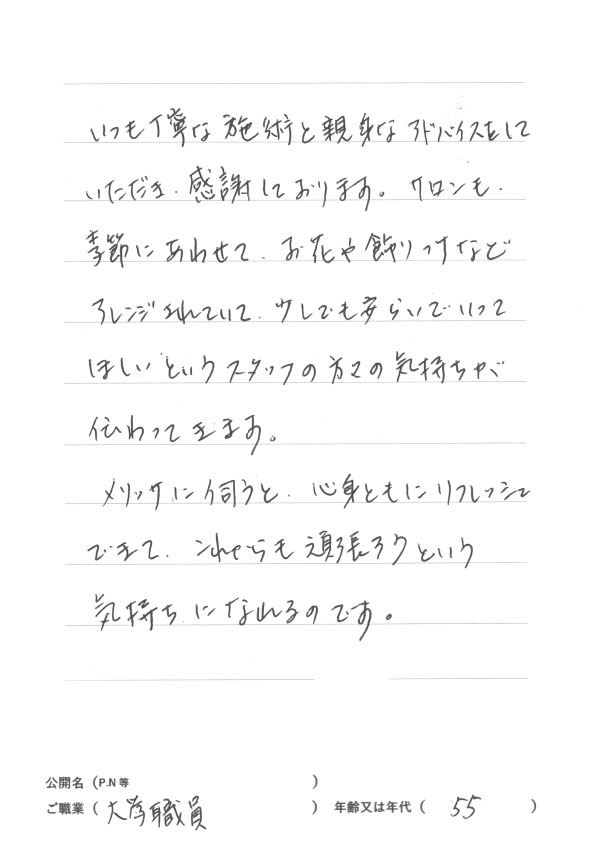 いつも丁寧な施術と親身なアドバイスをして
いただき、感謝しております。サロンも、
季節にあわせて、お花や飾りつけなど
アレンジされていて、少しでも安らいでいって
ほしいというスタッフの方々の気持ちが
伝わってきます。
メリッサに伺うと、心身ともにリフレッシュ
できて、これからも頑張ろうという
気持ちになれるのです。
公開名（P.N等　　　）
ご職業（大学職員　）　年齢又は年代（　55　）